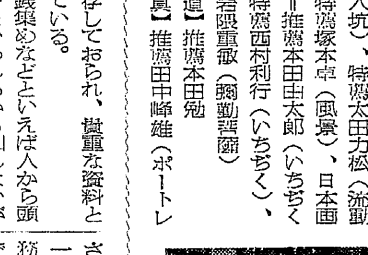 人坑）、特薦太田力松（流動
特薦塚本卓（風景）、日本画
＝推薦本田由太郎（いちぢく
特薦西村利行（いちぢく）、
岩隈重敏（弥勒菩薩）
道】推薦本田勉
真】推薦田中峰雄（ポートレ
存しておられ、貴重な資料と
ている。
銭集めなどといえば人から頭